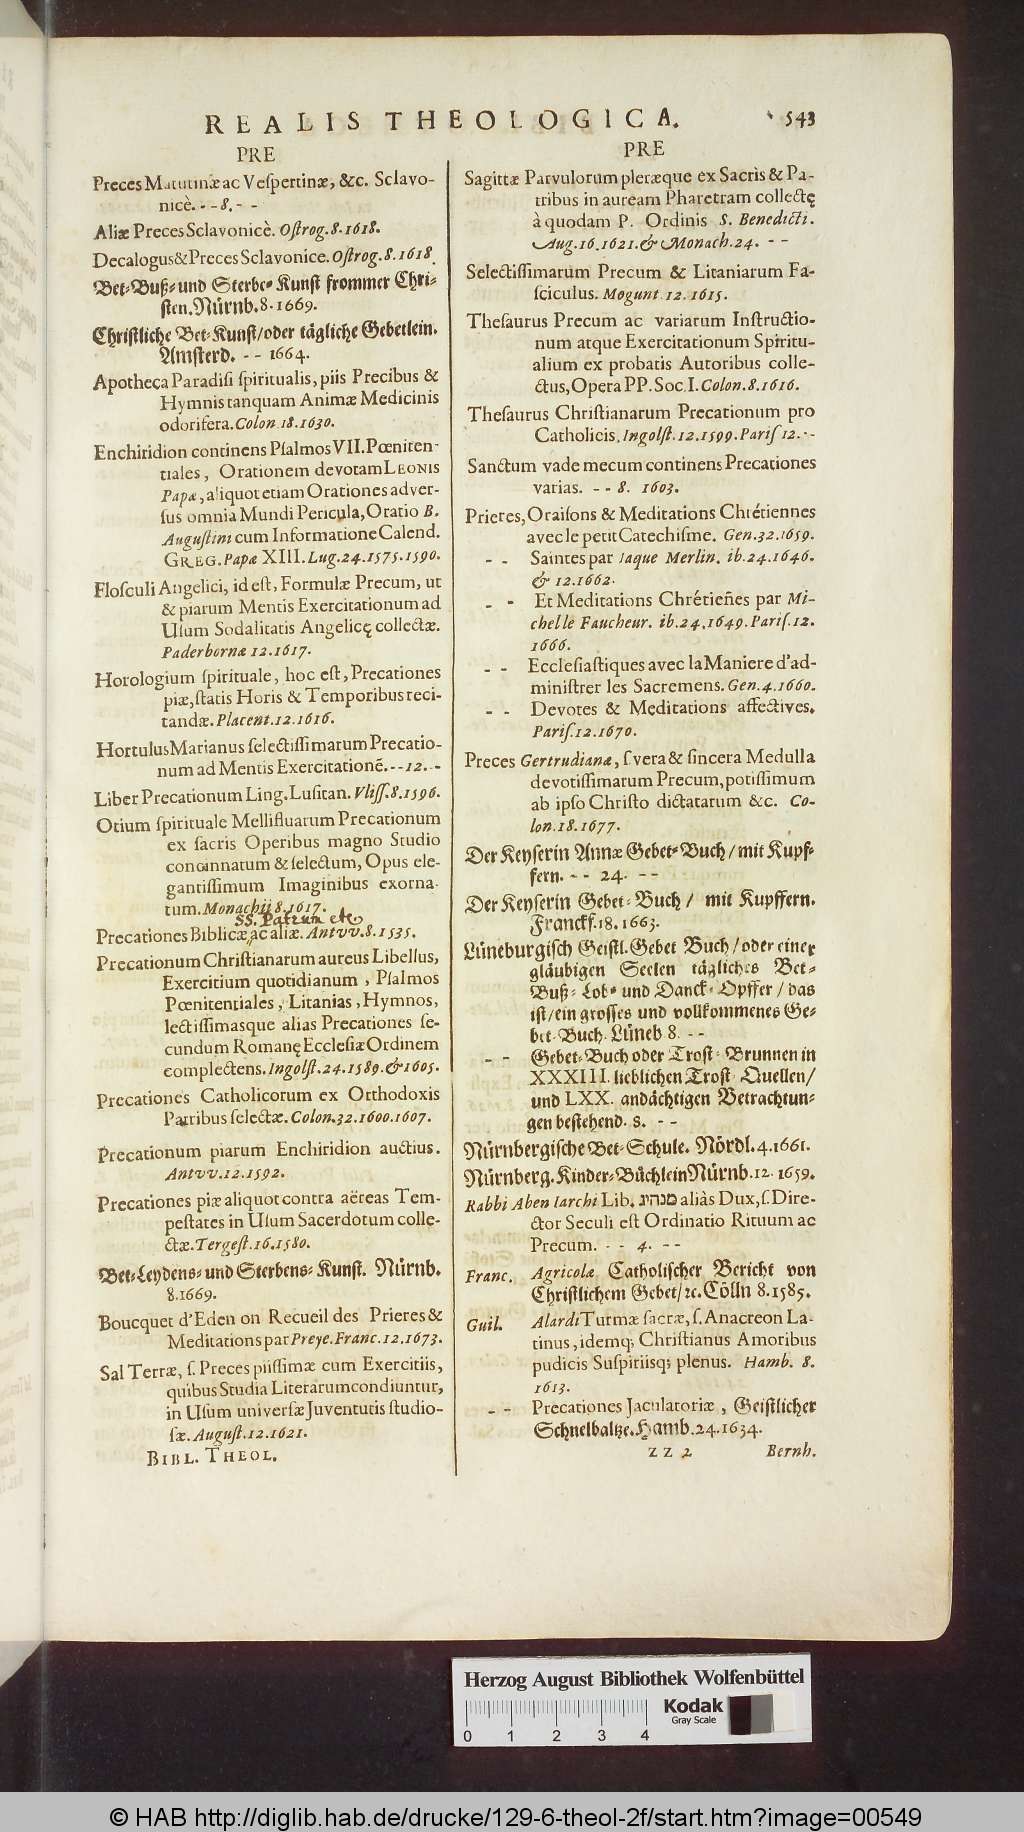 REALIS THEOLOGICA. 543
PRE
Preces Matutinæ ac Veſpertinæ, &c. Sclavo-
nicè. - - 8. - -
Aliæ Preces Sclavonicè. Oſtrog. 8. 1618.
Decalogus & Preces Sclavonice. Oſtrog. 8. 1618.
Bet- Buß- und Sterbe- Kunſt frommer Chri-
ſten. Nürnb. 8. 1669.
Chriſtliche Bet-Kunſt/ oder tägliche Gebetlein.
Amſterd. - - 1664.
Apotheca Paradiſi ſpiritualis, piis Precibus &
Hymnis tanquam Animæ Medicinis
odorifera. Colon. 18. 1630.
Enchiridion continens Pſalmos VII. Pœniten-
tiales, Orationem devotam LEONIS
Papæ, aliquot etiam Orationes adver-
ſus omnia Mundi Pericula, Oratio B.
Auguſtini cum Informatione Calend.
GREG. Papæ XIII. Lug. 24. 1575. 1590.
Floſculi Angelici, id eſt, Formulæ Precum, ut
& piarum Mentis Exercitationum ad
Uſum Sodalitatis Angelicę collectæ.
Paderbornæ 12. 1617.
Horologium ſpirituale, hoc eſt, Precationes
piæ, ſtatis Horis & Temporibus reci-
tandæ. Placent. 12. 1616.
Hortulus Marianus ſelectiſſimarum Precatio-
num ad Mentis Exercitationē. - - 12. - -
Liber Precationum Ling. Luſitan. Vliſſ. 8. 1596.
Otium ſpirituale Mellifluarum Precationum
ex ſacris Operibus magno Studio
concinnatum & ſelectum, Opus ele-
gantiſſimum Imaginibus exorna-
tum. Monachii 8. 1617.
SS. Patrum etc
Precationes Biblicæ, ac aliæ. Antvv. 8. 1535.
Precationum Chriſtianarum aureus Libellus,
Exercitium quotidianum, Pſalmos
Pœnitentiales, Litanias, Hymnos,
lectiſſimasque alias Precationes ſe-
cundum Romanę Eccleſiæ Ordinem
complectens. Ingolſt. 24. 1589. & 1605.
Precationes Catholicorum ex Orthodoxis
Patribus ſelectæ. Colon. 32. 1600. 1607.
Precationum piarum Enchiridion auctius.
Antvv. 12. 1592.
Precationes piæ aliquot contra aëreas Tem-
peſtates in Uſum Sacerdotum colle-
ctæ. Tergeſt. 16. 1580.
Bet- Leydens- und Sterbens- Kunſt. Nürnb.
8. 1669.
Boucquet d'Eden on Recueil des Prieres &
Meditations par Preye. Franc. 12. 1673.
Sal Terræ, ſ. Preces piiſſimæ cum Exercitiis,
quibus Studia Literarum condiuntur,
in Uſum univerſæ Juventutis ſtudio-
ſæ. Auguſt. 12. 1621.
BIBL. THEOL.
PRE
Sagittæ Parvulorum pleræque ex Sacris & Pa-
tribus in auream Pharetram collectę
à quodam P. Ordinis S. Benedicti.
Aug. 16. 1621. & Monach. 24. - -
Selectiſſimarum Precum & Litaniarum Fa-
ſciculus. Mogunt. 12. 1615.
Theſaurus Precum ac variarum Inſtructio-
num atque Exercitationum Spiritu-
alium ex probatis Autoribus colle-
ctus, Opera PP. Soc. I. Colon. 8. 1616.
Theſaurus Chriſtianarum Precationum pro
Catholicis. Ingolſt. 12. 1599. Pariſ 12. - -
Sanctum vade mecum continens Precationes
varias. - - 8. 1603.
Prieres, Oraiſons & Meditations Chrétiennes
avec le petit Catechiſme. Gen. 32. 1659.
- - Saintes par Jaque Merlin. ib. 24. 1646.
& 12. 1662.
- - Et Meditations Chrétien̄es par Mi-
chelle Faucheur. ib. 24. 1649. Pariſ. 12.
1666.
- - Eccleſiaſtiques avec la Maniere d'ad-
miniſtrer les Sacremens. Gen. 4. 1660.
- - Devotes & Meditations affectives.
Pariſ. 12. 1670.
Preces Gertrudianæ, ſ vera & ſincera Medulla
devotiſſimarum Precum, potiſſimum
ab ipſo Chriſto dictatarum &c. Co-
lon. 18. 1677.
Der Keyſerin Annæ Gebet-Buch/ mit Kupf-
fern. - - 24. - -
Der Keyſerin Gebet-Buch/ mit Kupffern.
Franckf. 18. 1663.
Lüneburgiſch Geiſtl. Gebet Buch/ oder einer
gläubigen Seelen tägliches Bet-
Buß- Lob- und Danck- Opffer/ das
iſt/ ein groſſes und vollkommenes Ge-
bet-Buch. Lüneb 8. - -
- - Gebet-Buch oder Troſt- Brunnen in
XXXIII. lieblichen Troſt- Quellen/
und LXX. andächtigen Betrachtun-
gen beſtehend. 8. - -
Nürnbergiſche Bet-Schule. Nördl. 4. 1661.
Nürnberg. Kinder-Büchlein Nürnb. 12. 1659.
Rabbi Aben Iarchi Lib. מנהיג aliàs Dux, ſ. Dire-
ctor Seculi eſt Ordinatio Rituum ac
Precum. - - 4. - -
Franc. Agricolæ Catholiſcher Bericht von
Chriſtlichem Gebet/ ꝛc. Cölln 8. 1585.
Guil. Alardi Turmæ ſacræ, ſ. Anacreon La-
tinus, idemq; Chriſtianus Amoribus
pudicis Suſpiriisq; plenus. Hamb. 8.
1613.
- - Precationes Jaculatoriæ, Geiſtlicher
Schnelbaltze. Hamb. 24. 1634.
ZZ 2 Bernh.
Herzog August Bibliothek Wolfenbüttel
Kodak
Gray Scale
0 1 2 3 4
© HAB http://diglib.hab.de/drucke/129-6-theol-2f/start.htm?image=00549